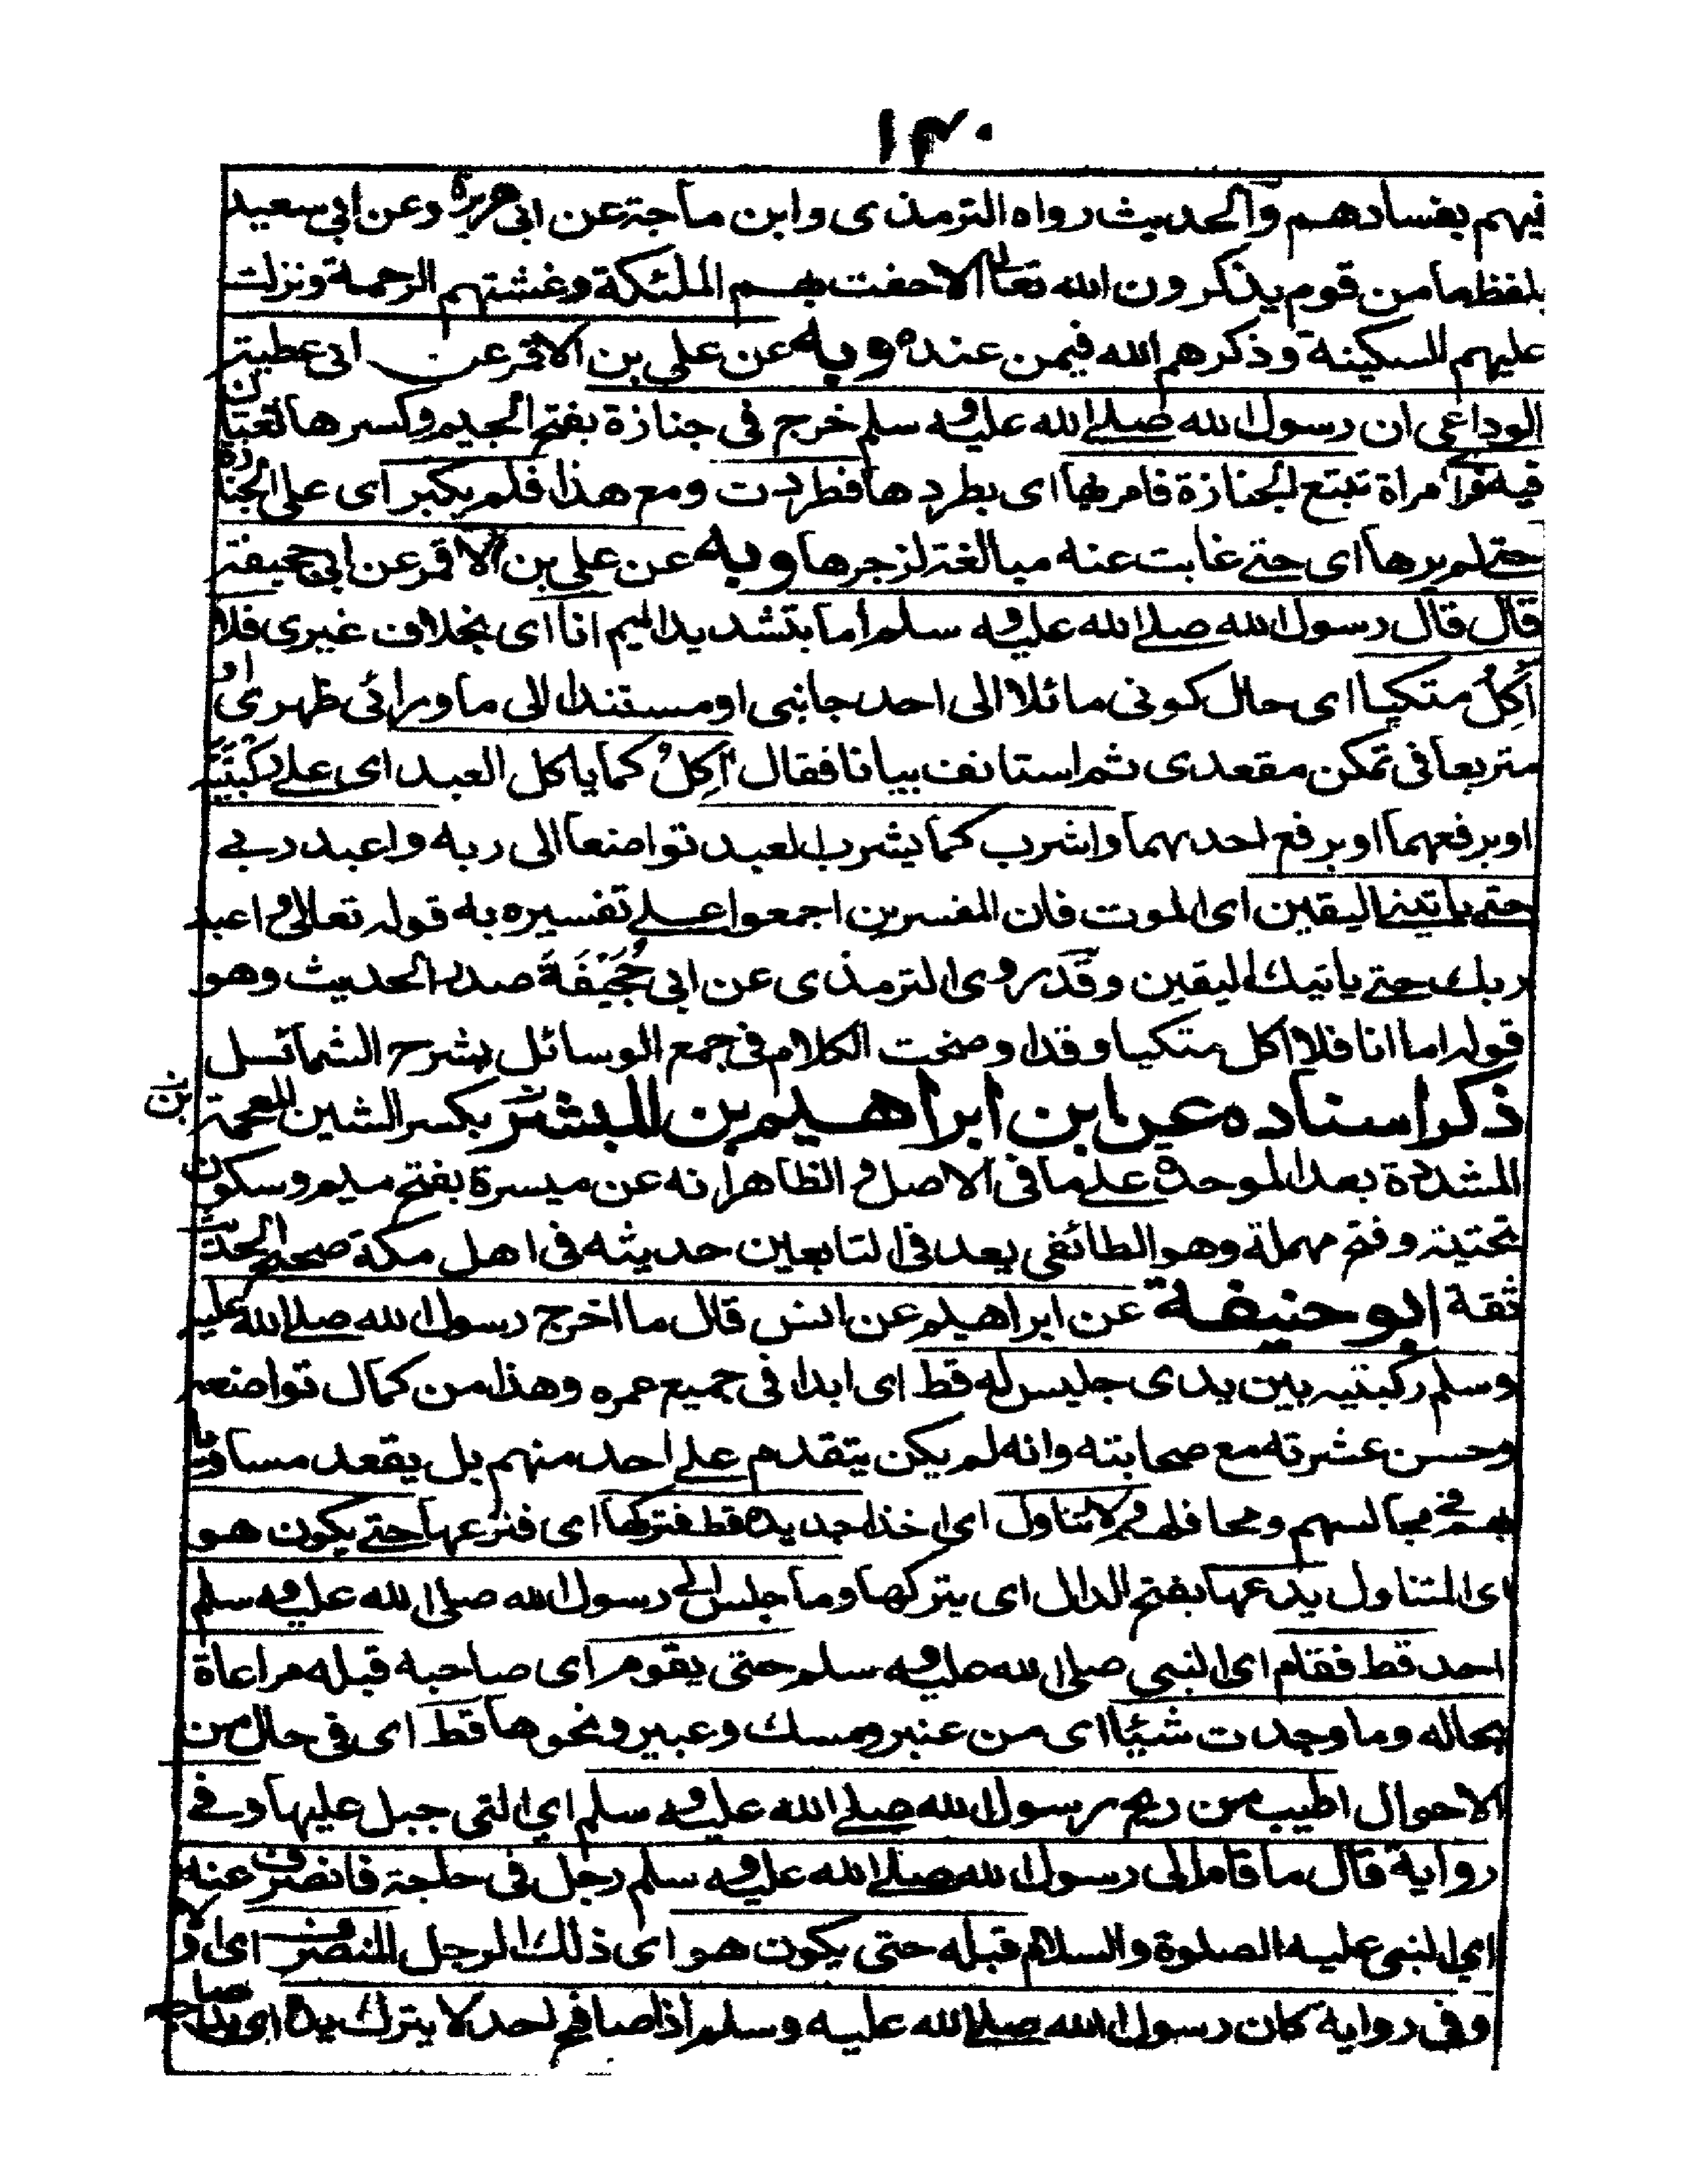 ١٣٠
فيهم بفسادهم والحديث رواه الترمذى وابن ماجة عن ابى هريرة وعن ابى سعيد
بلفظ ما من قوم يذكرون الله تعالى الا حفت بهم الملئكة وغشتهم الرحمة ونزلت
عليهم السكينة وذكرهم الله فيمن عنده وبه عن على بن الاقمر عن ابى عطية
الوداعى ان رسول الله صلى الله عليه وسلم خرج فى جنازة بفتح الجيم وكسرها لغتان
فيه فرأى امراة تتبع الجنازة فامر بها اى بطردها فطردت ومع هذا فلم يكبر اى على الجنازة
حتى لم يرها اى حتى غابت عنه مبالغة لزجرها وبه عن على بن الاقمر عن ابى جحيفة
قال قال رسول الله صلى الله عليه وسلم اما بتشديد الميم انا اى بخلاف غيرى فلا
اٰكُلُ متكيا اى حال كونى مائلا الى احد جانبى او مستندا الى ما ورائى ظهرى او
متربعا فى تمكن مقعدى ثم استانف بيانا فقال اٰكل كما ياكل العبد اى على ركبتيه
او برفعهما او برفع احدهما واشرب كما يشرب العبد تواضعا الى ربه واعبد ربى
حتى ياتينى اليقين اى الموت فان المفسرين اجمعوا على تفسيره به قوله تعالى واعبد
ربك حتى ياتيك اليقين وقد روى الترمذى عن ابى جُحَيْفَةَ صدر الحديث وهو
قوله اما انا فلا اكل متكيا وقد اوضحت الكلام فى جمع الوسائل بشرح الشمائل
ذكر اسناده عن ابن ابراهيم بن المبشر بكسر الشين المعجمة
المشددة بعد الموحدة على ما فى الاصل والظاهر انه عن ميسرة بفتح ميم وسكون
تحتية وفتح مهملة وهو الطائفى يعد فى التابعين حديثه فى اهل مكة صحيح الحديث
ثقة ابو حنيفة عن ابراهيم عن انس قال ما اخرج رسول الله صلى الله عليه
وسلم ركبتيه بين يدى جليس له قط اى ابدا فى جميع عمره وهذا من كمال تواضعه
وحسن عشرته مع صحابته وانه لم يكن يتقدم على احد منهم بل يقعد مساويا
بهم فى مجالسهم ومحافلهم ولا تناول اى اخذ احد يده قط فتركها اى فنزعها حتى يكون هو
اى المتناول يدعها بفتح الدال اى يتركها وما جلس الى رسول الله صلى الله عليه وسلم
احد قط فقام اى النبى صلى الله عليه وسلم حتى يقوم اى صاحبه قبله مراعاة
بحاله وما وجدت شيئا اى من عنبر ومسك وعبير ونحوها قط اى فى حال من
الاحوال اطيب من ريح رسول الله صلى الله عليه وسلم اى التى جبل عليها وفى
رواية قال ما قام الى رسول الله صلى الله عليه وسلم رجل فى حاجة فانصرف عنه
اى النبى عليه الصلوة والسلام قبله حتى يكون هو اى ذلك الرجل المنصرف اى اولا
وفى رواية كان رسول الله صلى الله عليه وسلم اذا صافح احدا لا يترك يده اى يد صاحبه